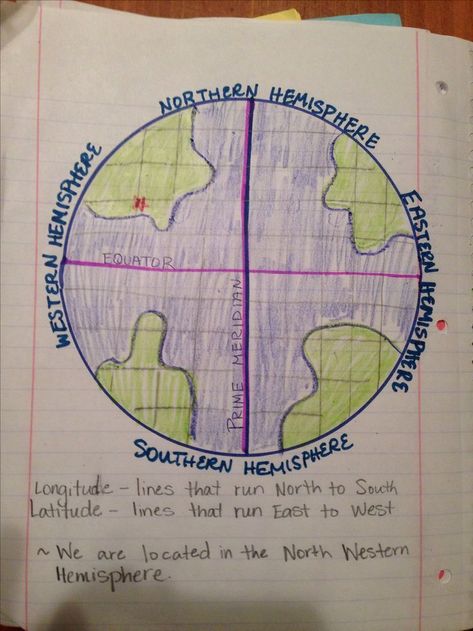 NORTHERN HEMISPHERE
WESTERN HEMISPHERE
EASTERN HEMISPHERE
EQUATOR
PRIME MERIDIAN
SOUTHERN HEMISPHERE
Longitude – lines that run North to South
Latitude – lines that run East to West
~ We are located in the North Western
Hemisphere.